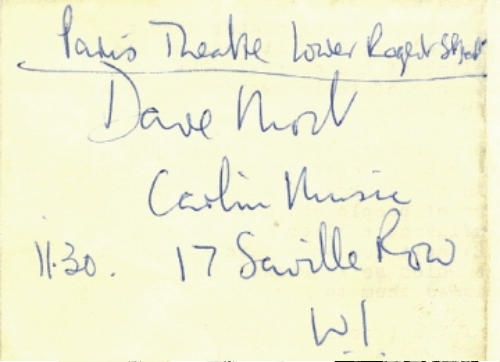 Paris Theatre Lower Regent Street
Dave Most
Carlin Music
11.30. 17 Saville Row
W.1